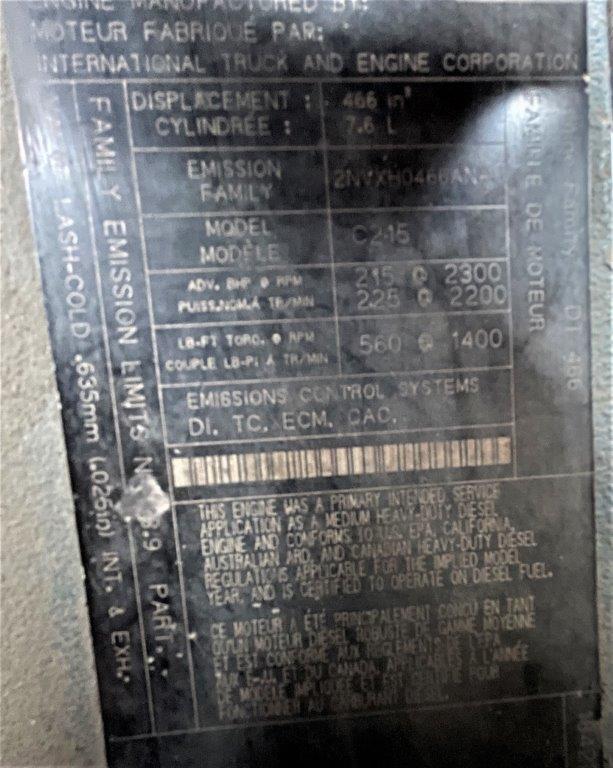 ENGINE MANUFACTURED BY:
MOTEUR FABRIQUÉ PAR:
INTERNATIONAL TRUCK AND ENGINE CORPORATION
DISPLACEMENT : 466 in³
CYLINDRÉE : 7.6 L
EMISSION
FAMILY
MODEL C215
MODÈLE
ADV. BHP @ RPM 215 @ 2300
PUISS.NOM.À TR/MIN 225 @ 2200
LB-FT TORQ. @ RPM 560 @ 1400
COUPLE LB-PI À TR/MIN
EMISSIONS CONTROL SYSTEMS
DI, TC, ECM, CAC,
THIS ENGINE HAS A PRIMARY INTENDED SERVICE
APPLICATION AS A MEDIUM HEAVY-DUTY DIESEL
ENGINE AND CONFORMS TO U.S. EPA, CALIFORNIA,
AUSTRALIAN ARD, AND CANADIAN HEAVY-DUTY DIESEL
REGULATIONS APPLICABLE FOR THE IMPLIED MODEL
YEAR. AND IS CERTIFIED TO OPERATE ON DIESEL FUEL.
CE MOTEUR A ÉTÉ PRINCIPALEMENT CONÇU EN TANT
QU'UN MOTEUR DIESEL ROBUSTE DE GAMME MOYENNE
ET EST CONFORME AUX RÈGLEMENTS DE L'EPA
ET DU CANADA, APPLICABLES À L'ANNÉE
DE MODÈLE IMPLIQUÉE ET EST CERTIFIÉ POUR
FONCTIONNER AU CARBURANT DIESEL.
FAMILY EMISSION LIMITS 3.9 PART.
LASH-COLD .635mm (.025in) INT. & EXH.
Family DT 466
FAMILLE DE MOTEUR